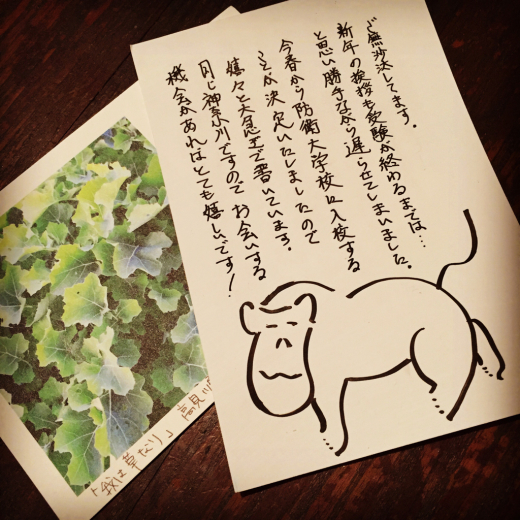 ご無沙汰してます。
新年の挨拶も受験が終わるまでは…
と思い勝手ながら遅らせてしまいました。
今春から防衛大学校に入校する
ことが決定いたしましたので
嬉々と大急ぎで書いています。
同じ神奈川ですので お会いする
機会があればとても嬉しいです!
「我は草なり」 高見